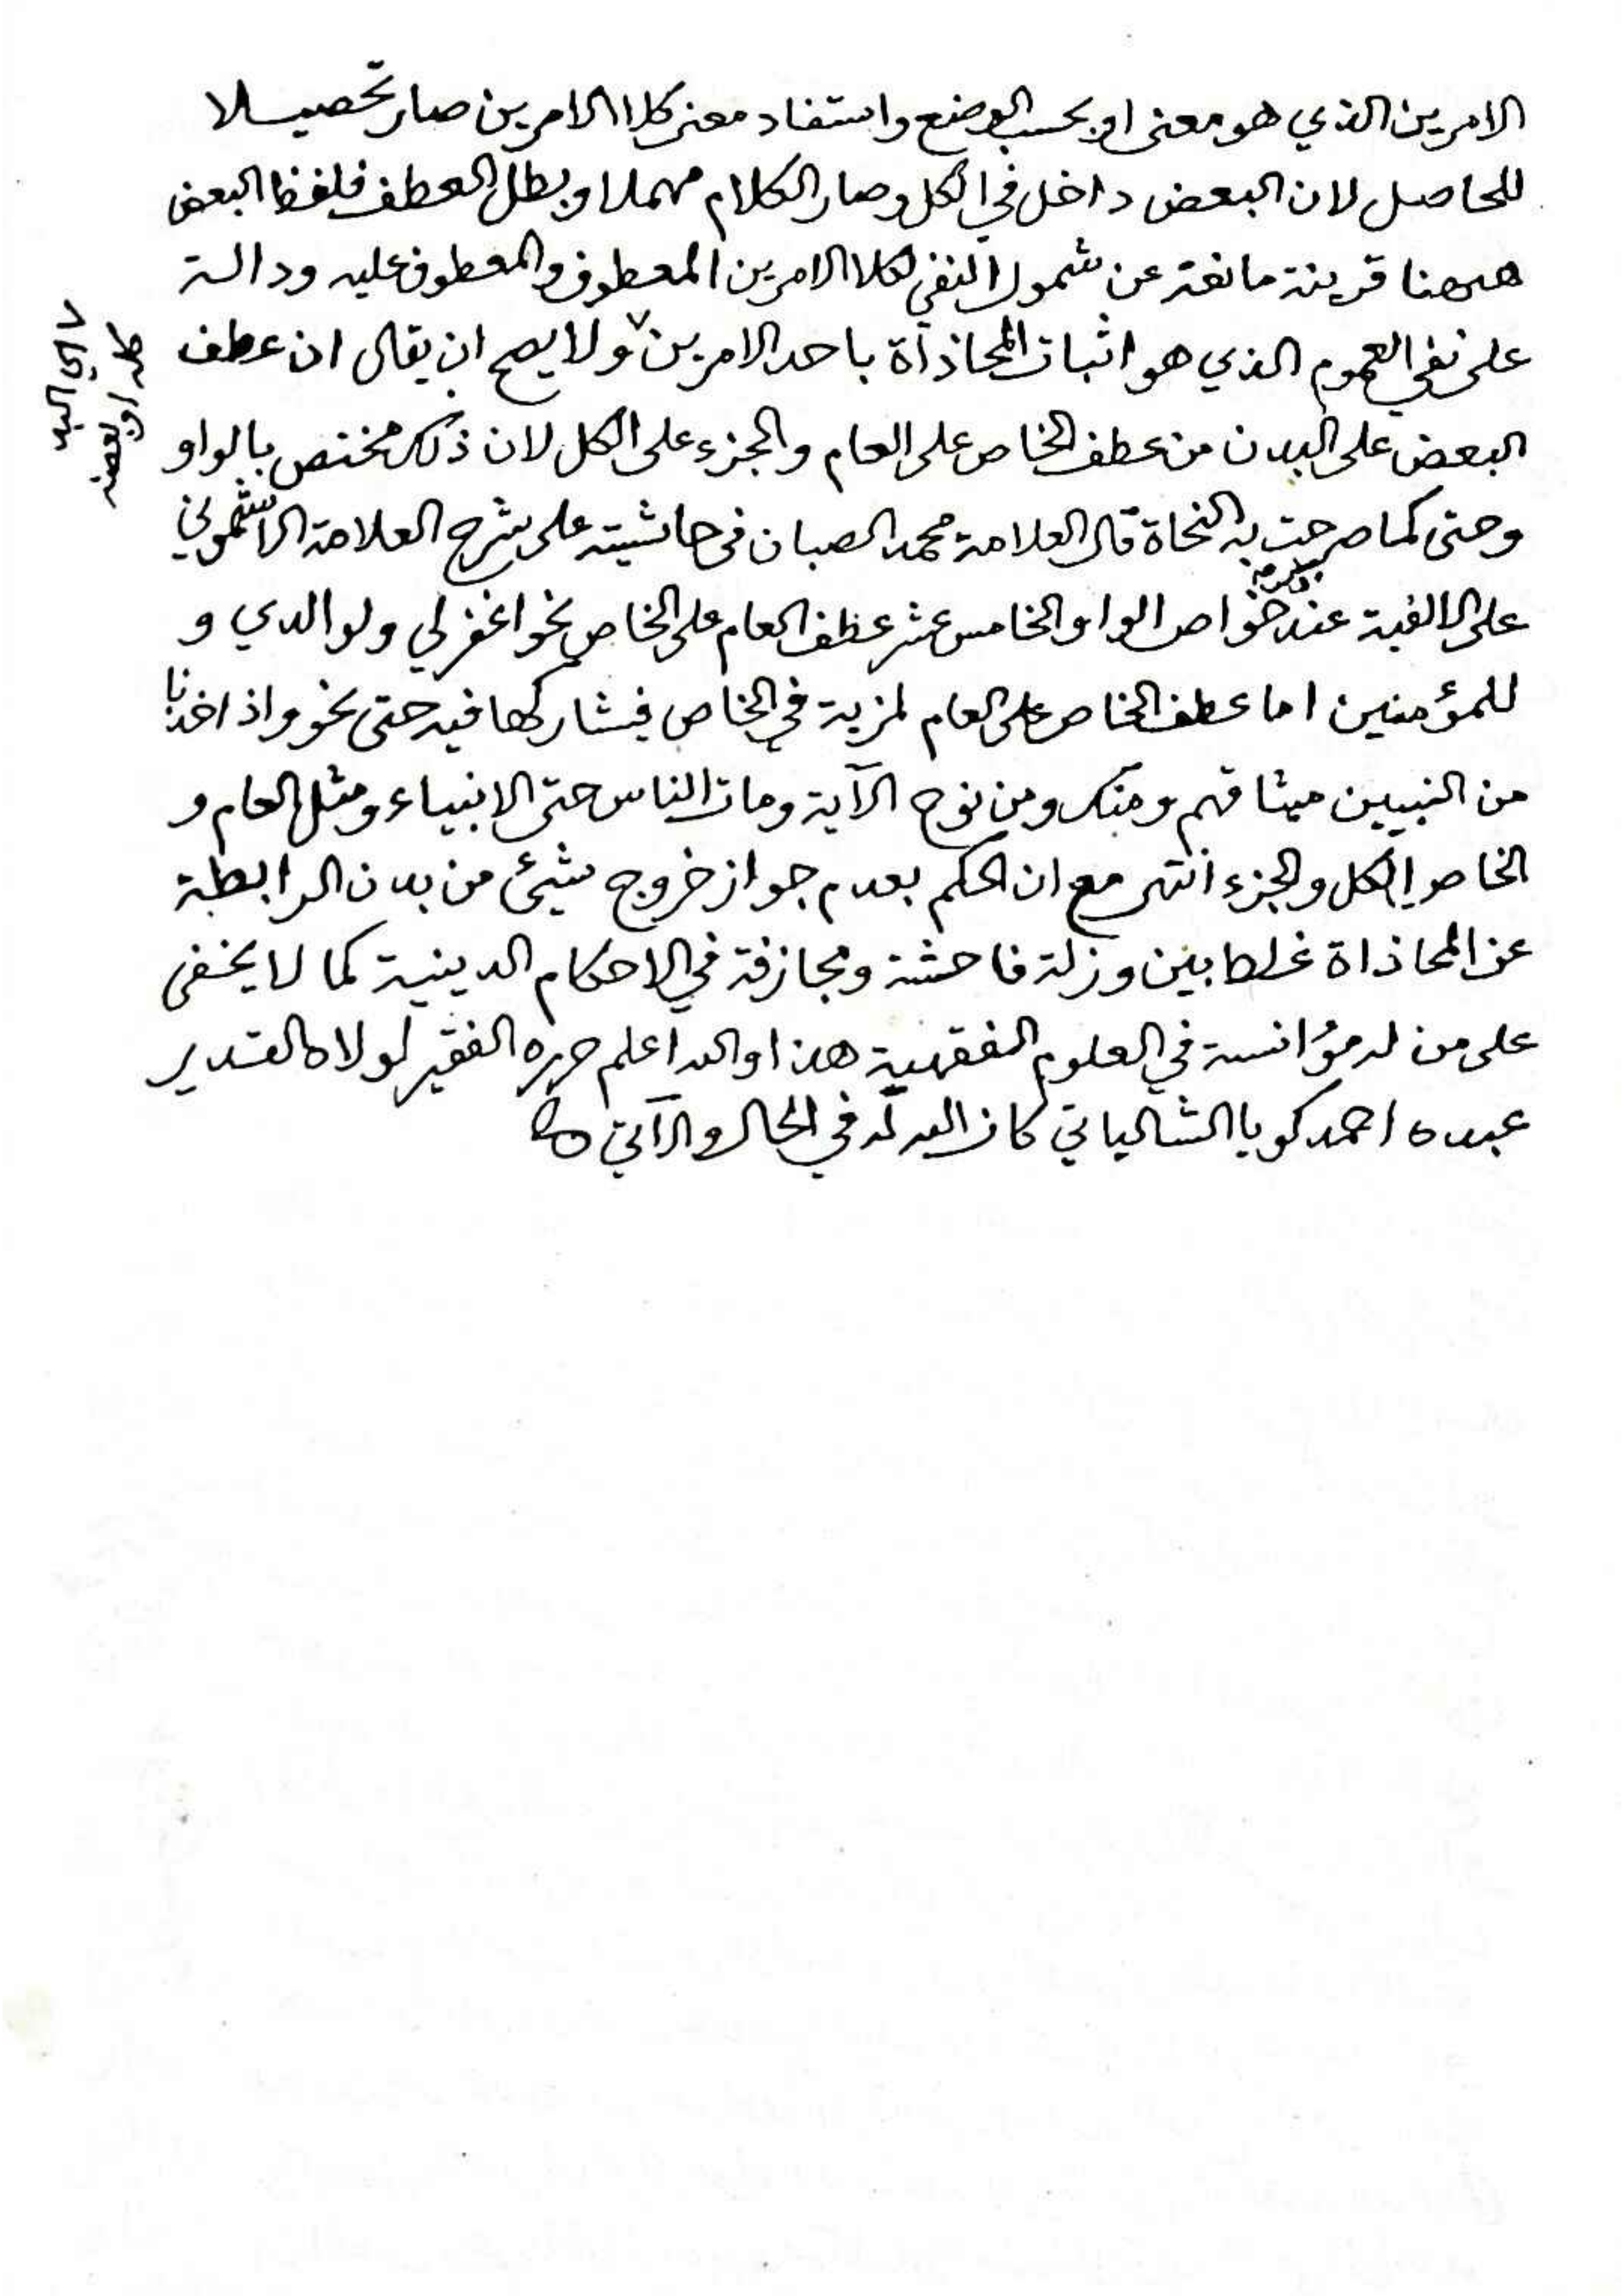 الامرين الذي هو معنى او بحسب الوضع واستفاد معنى كلا الامرين صار تحصيلا
للحاصل لان البعض داخل في الكل وصار الكلام مهملا وبطل العطف فلفظ البعض
ههنا قرينة مانعة عن شمول النفي لكلا الامرين المعطوف والمعطوف عليه ودالة
على نفي العموم الذي هو اثبات المحاذاة باحد الامرين ولا يصح ان يقال ان عطف
البعض على البدن من عطف الخاص على العام والجزء على الكل لان ذلك مختص بالواو
وحتى كما صرحت به النحاة قال العلامة محمد الصبان في حاشيته على شرح العلامة الاشموني
على الالفية عند خواص الواو الخامس عشر عطف العام على الخاص نحو اغفر لي ولوالدي و
للمؤمنين اما عطف الخاص على العام لمزية في الخاص فيشاركها فيه حتى نحو واذ اخذنا
من النبيين ميثاقهم ومنك ومن نوح الآية ومات الناس حتى الانبياء ومثل العام و
الخاص الكل والجزء انتهى مع ان الحكم بعدم جواز خروج شيئ من بدن الرابطة
عن المحاذاة غلط بين وزلة فاحشة ومجازفة في الاحكام الدينية كما لا يخفى
على من له مؤانسة في العلوم الفقهية هذا والله اعلم حرره الفقير لمولاه القدير
عبده احمد كويا الشالياتي كان الله له في الحال والآتي
اي البدن
كله او بعضه